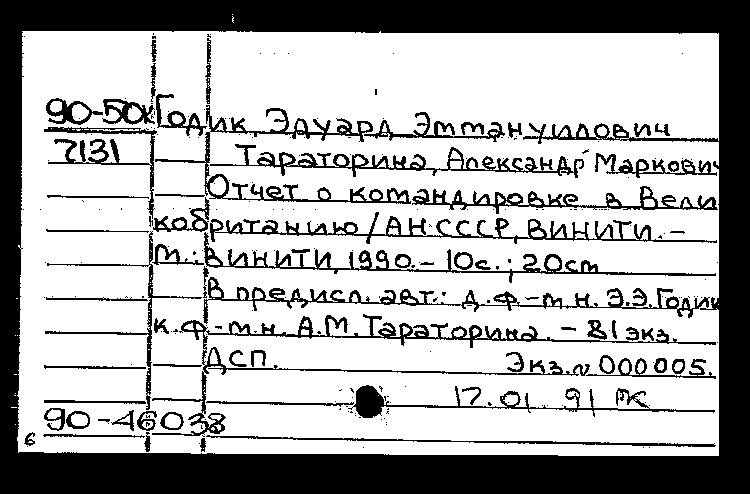 90-50к Годик, Эдуард Эммануилович
7131 Тараторина, Александр Маркович
Отчет о командировке в Вели
кобританию / АН СССР, ВИНИТИ. –
М.: ВИНИТИ, 1990. – 10с.; 20см
В предисл. авт.: д.ф-м.н. Э.Э.Годик
к.ф-м.н. А.М.Тараторина. – 81 экз.
ДСП. Экз.№ 000005.
17.01 91 МК
90-46038
6